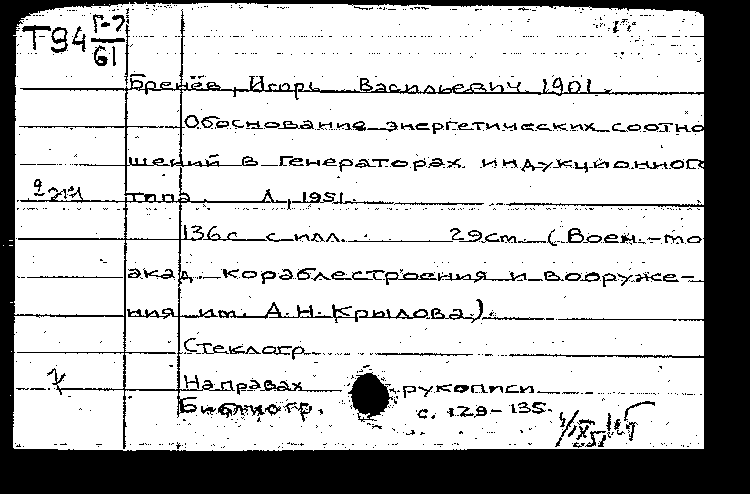 Т94 Г-7
61
Бренёв, Игорь Васильевич 1901.
Обоснование энергетических соотно
шений в генераторах индукционного
типа. Л., 1951.
2 эк
136с с илл. 29см. (Воен.-мо
акад. кораблестроения и вооруже-
ния им. А.Н. Крылова.).
Стеклогр.
На правах рукописи
Библиогр. с. 129-135.